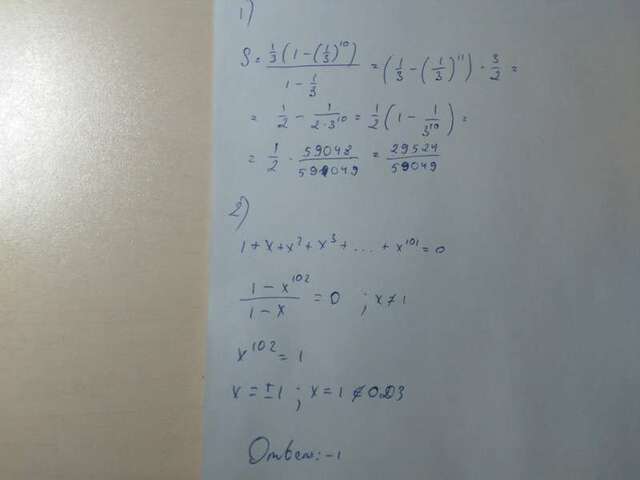 1)
S = \frac{\frac{1}{3}(1-(\frac{1}{3})^{10})}{1-\frac{1}{3}} = (\frac{1}{3}-(\frac{1}{3})^{11}) \cdot \frac{3}{2} =
= \frac{1}{2} - \frac{1}{2 \cdot 3^{10}} = \frac{1}{2}(1 - \frac{1}{3^{10}}) =
= \frac{1}{2} \cdot \frac{59048}{59049} = \frac{29524}{59049}
2)
1+x+x^2+x^3+...+x^{101}=0
\frac{1-x^{102}}{1-x} = 0 ; x≠1
x^{102} = 1
x = ±1 ; x = 1 ∉ ОДЗ
Ответ: -1